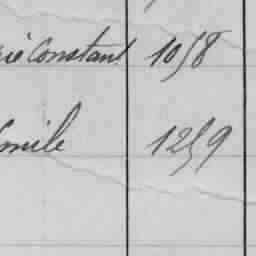 rie Constant 1058
Emile 1259